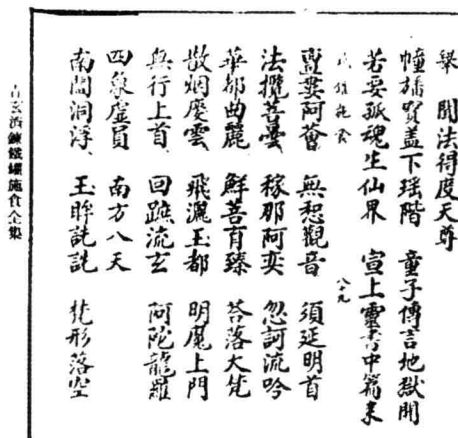 舉　聞法得度天尊
幢旛寶蓋下瑤階　童子傳言地獄開
若要孤魂生仙界　宣上靈書中篇來
施食　八十九
亶婁阿薈　無惒觀音　須延明首
法攬菩曇　稼那阿奕　忽訶流吟
華都曲麗　鮮菩育臻　荅落大梵
散烟慶雲　飛灑玉都　明魔上門
無行上首、回蹠流玄　阿陀龍羅
四象虛員　南方八天
南閻洞浮、玉眸詵詵　梵形落空
青玄濟鍊鐵鑵施食全集